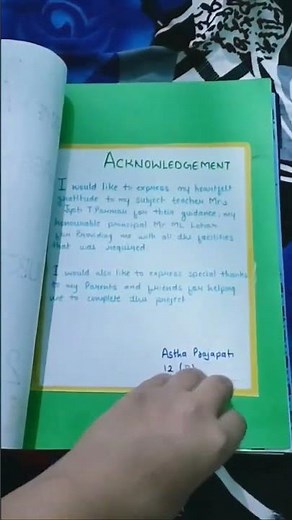 ACKNOWLEDGEMENT
I would like to express my heartfelt
gratitude to my subject teacher Mrs
Jyoti T Parmar for their guidance, my
honourable principal Mr ML Lohar
for Providing me with all the facilities
that was required.
I would also like to express special thanks
to my Parents and friends for helping
me to complete this project
Astha Prajapati
12